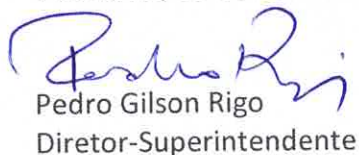 Pedro Rigo
Pedro Gilson Rigo
Diretor-Superintendente